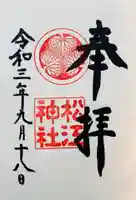 奉拝
松江神社
令和三年九月十八日